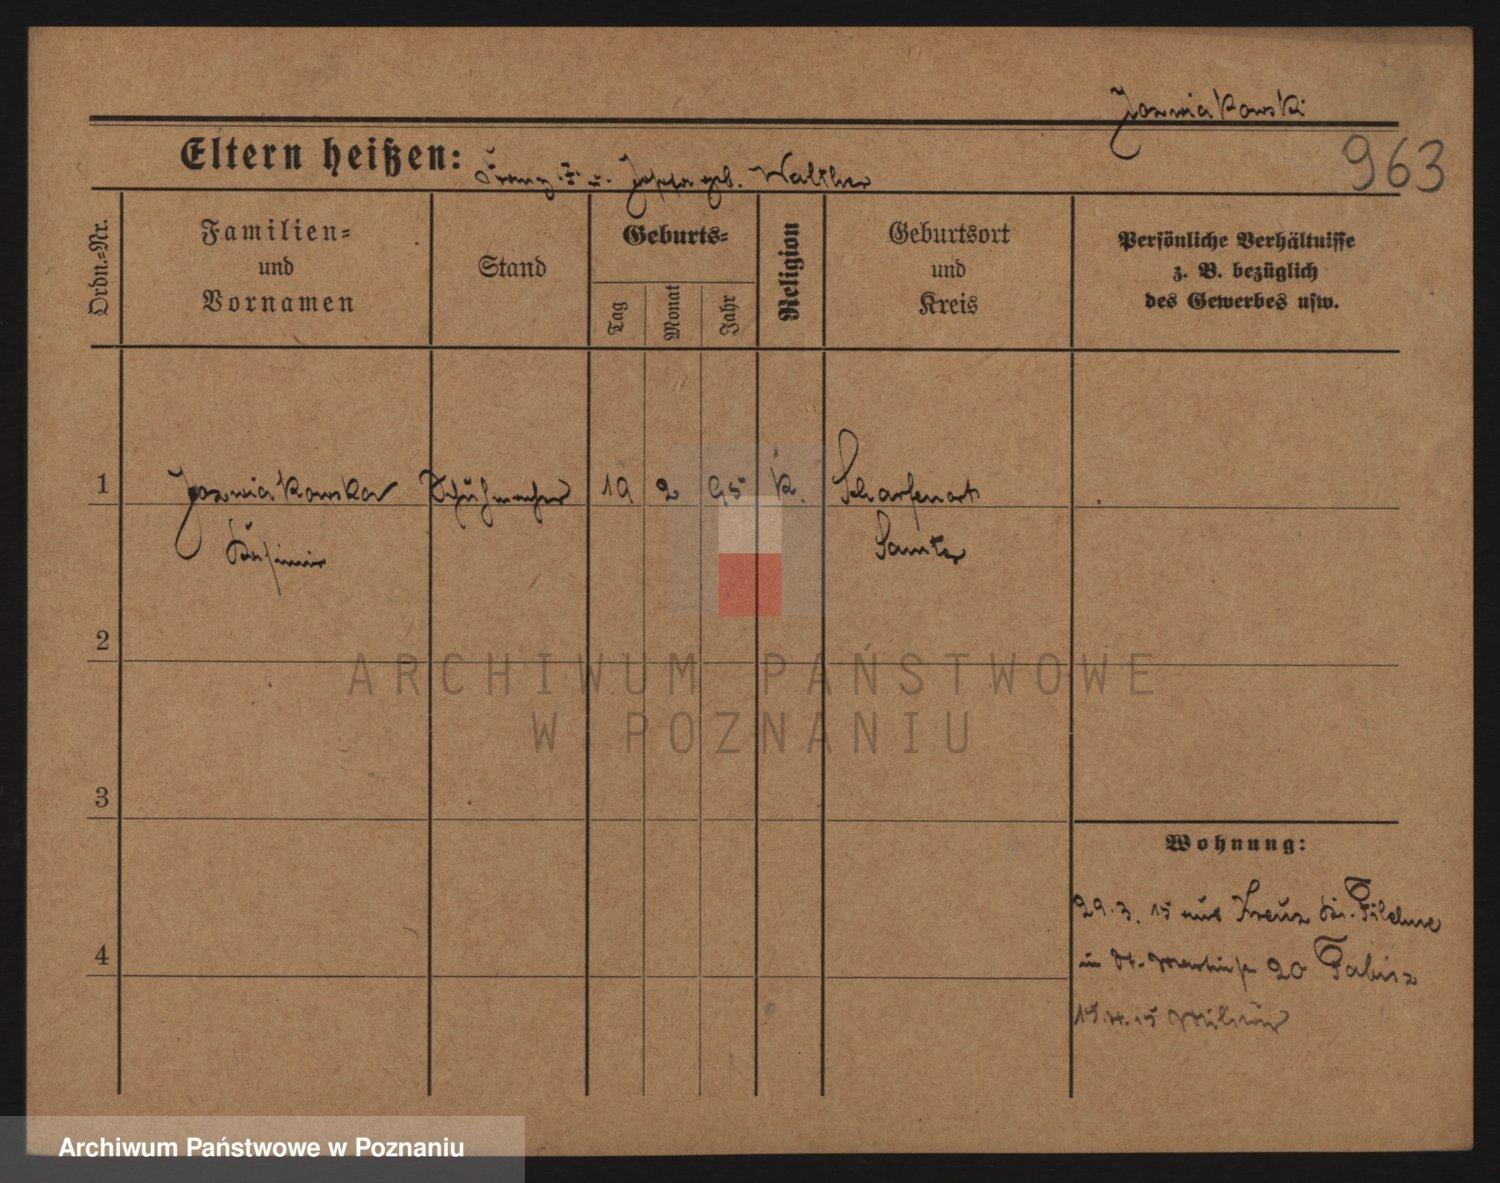 Jozwiakowski
963
Eltern heißen: Franz u. Josefa geb. Walther
Ordn.-Nr.
Familien-
und
Vornamen
Stand
Geburts-
Tag
Monat
Jahr
Religion
Geburtsort
und
Kreis
Persönliche Verhältnisse
z. B. bezüglich
des Gewerbes usw.
1 Schuhmacher 19 2 95 k. Scharfenort
Kasimir Samter
2
3
4
Wohnung:
29.3.15 aus Kreuz Kr. Filehne
20
15.4.15 Militär
ARCHIWUM PAŃSTWOWE
W POZNANIU
Archiwum Państwowe w Poznaniu